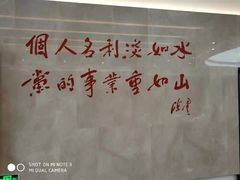 個人名利淡如水
黨的事業重如山
SHOT ON MI NOTE 3
MI DUAL CAMERA